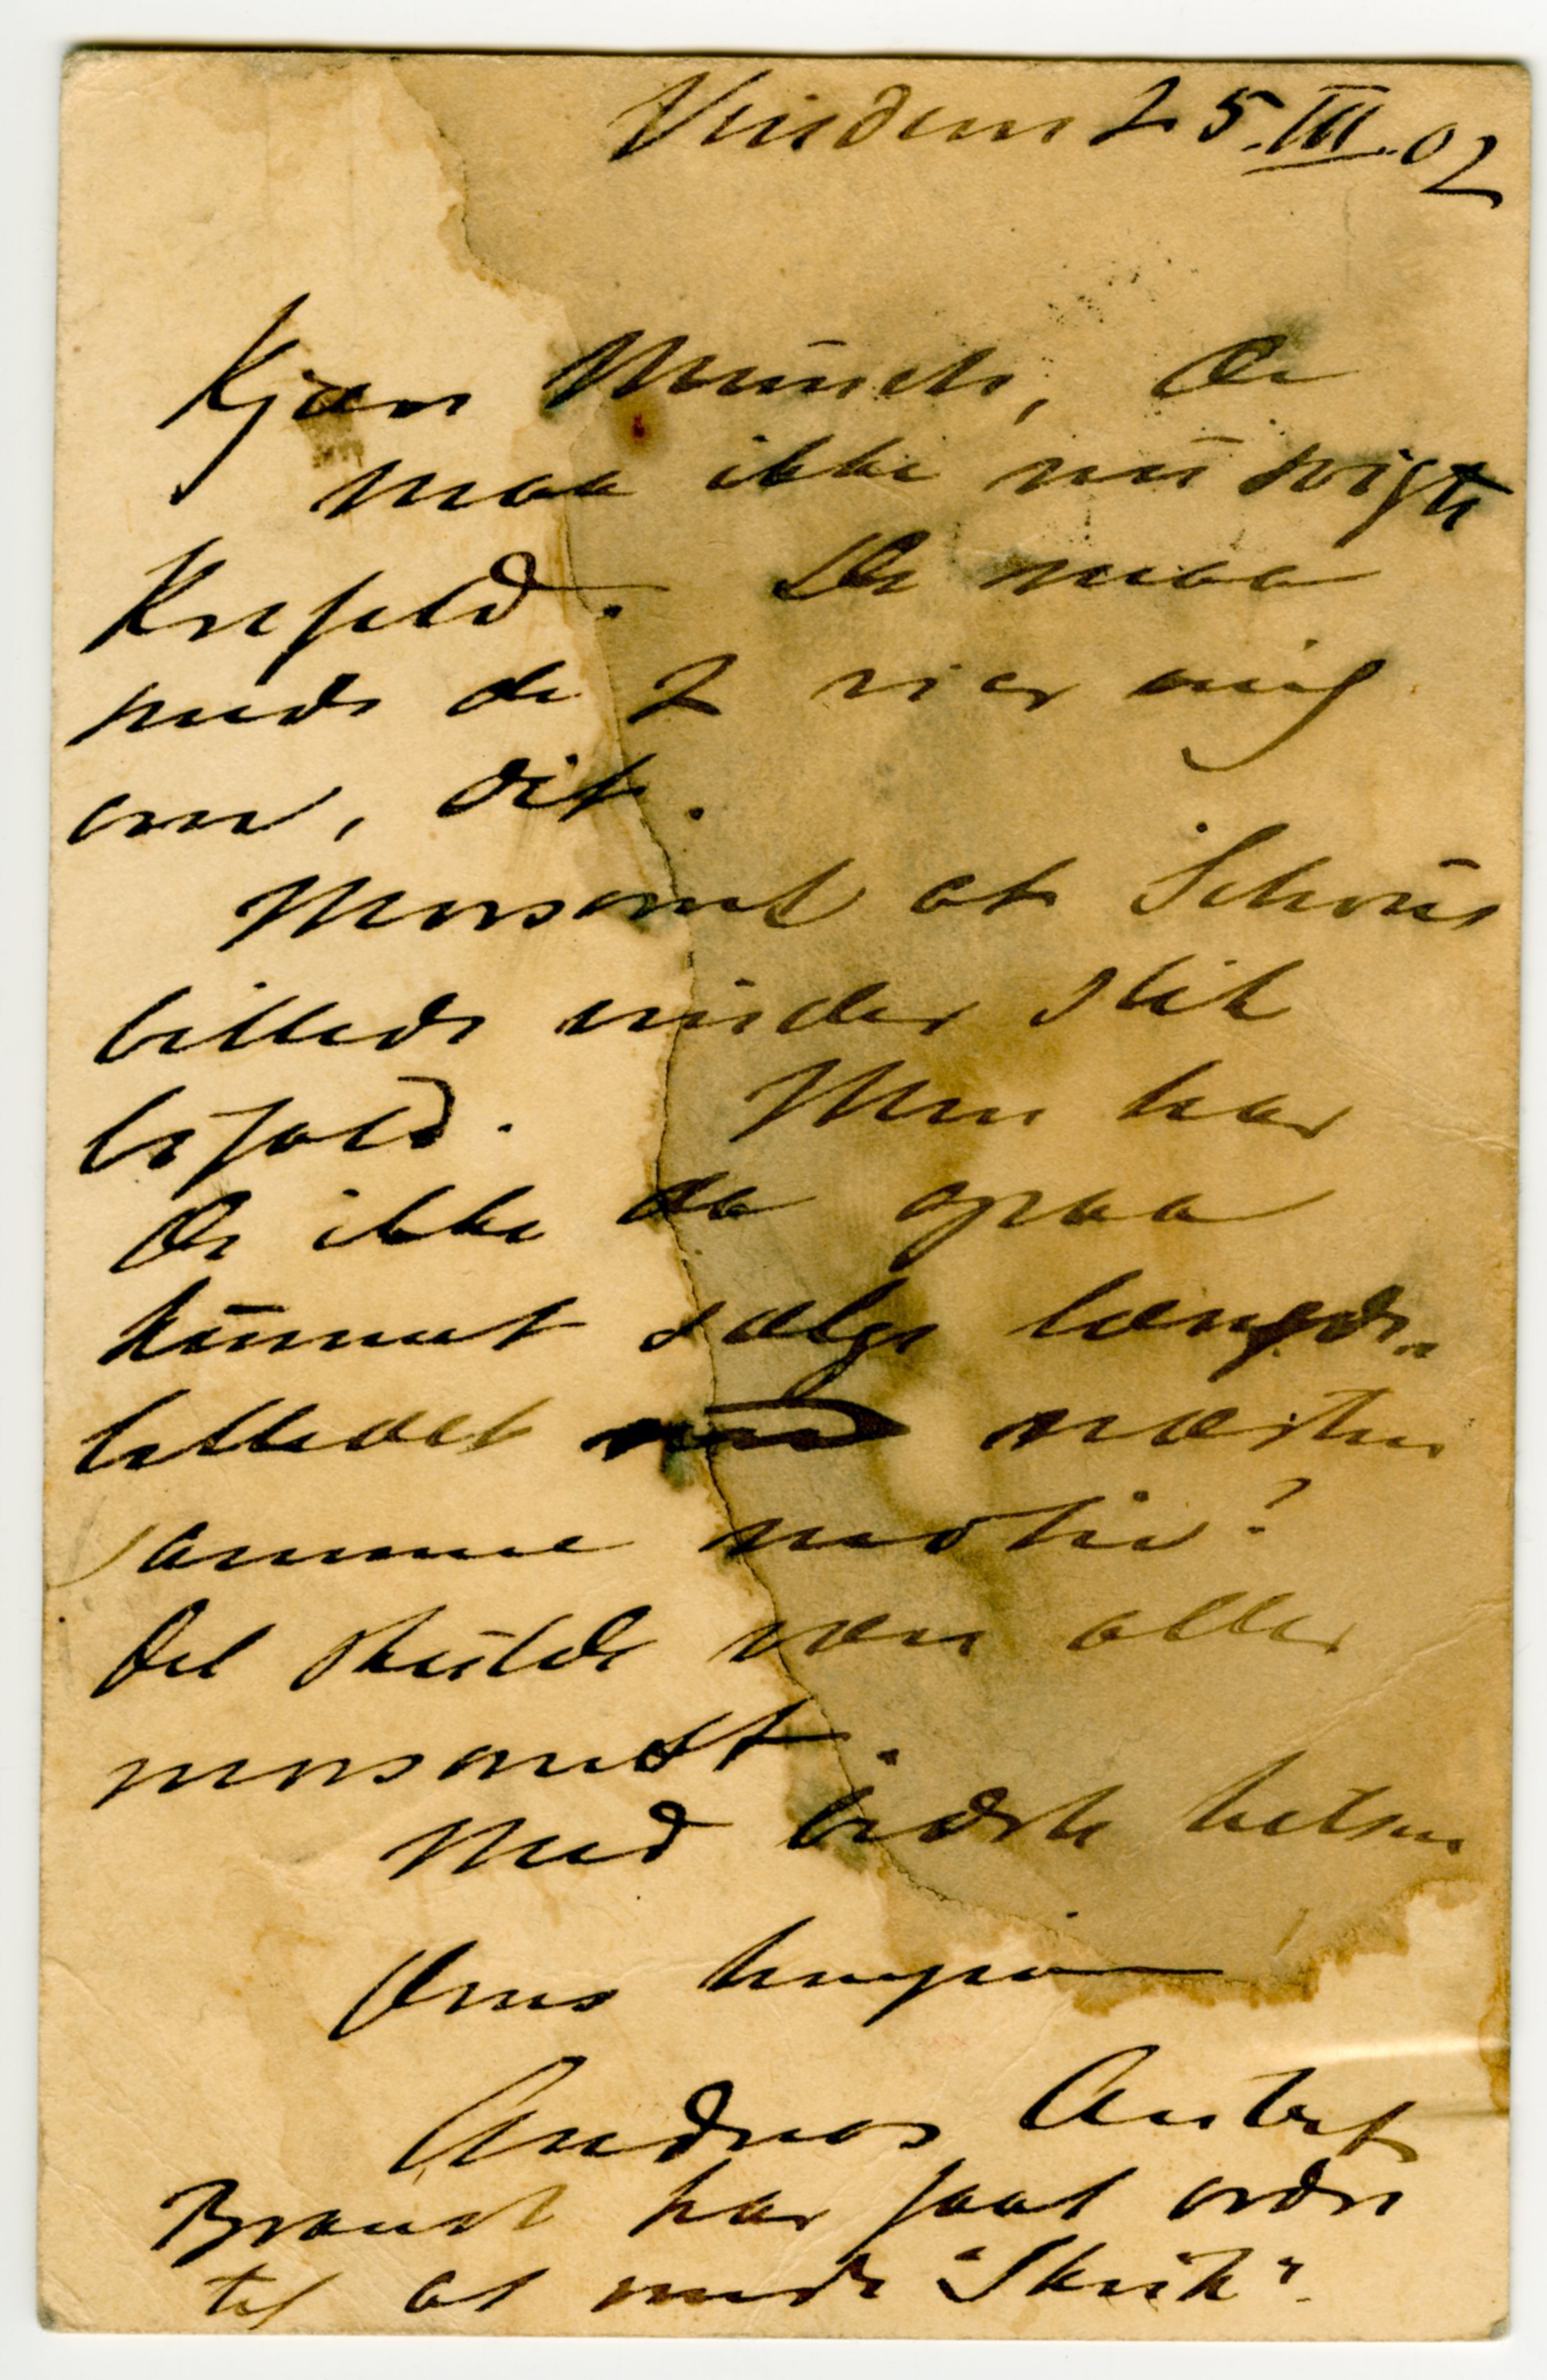 Dresden 25.III.02
Kjære Munch, De
maa ikke nu svigte
Krefeld. De maa
sende de 2 vi er enig
om, dit.
Morsomt at Schous
billede vinder slik
bifald. Men har
De ikke da ogsaa
kunnet sælge længde-
billedet næsten
samme motiv?
Det skulde være aller
morsomst.
Med bedste hilsen
Deres hengivne
Andreas Aubert
Brandt har faat ordre
til at sende "Skrik".